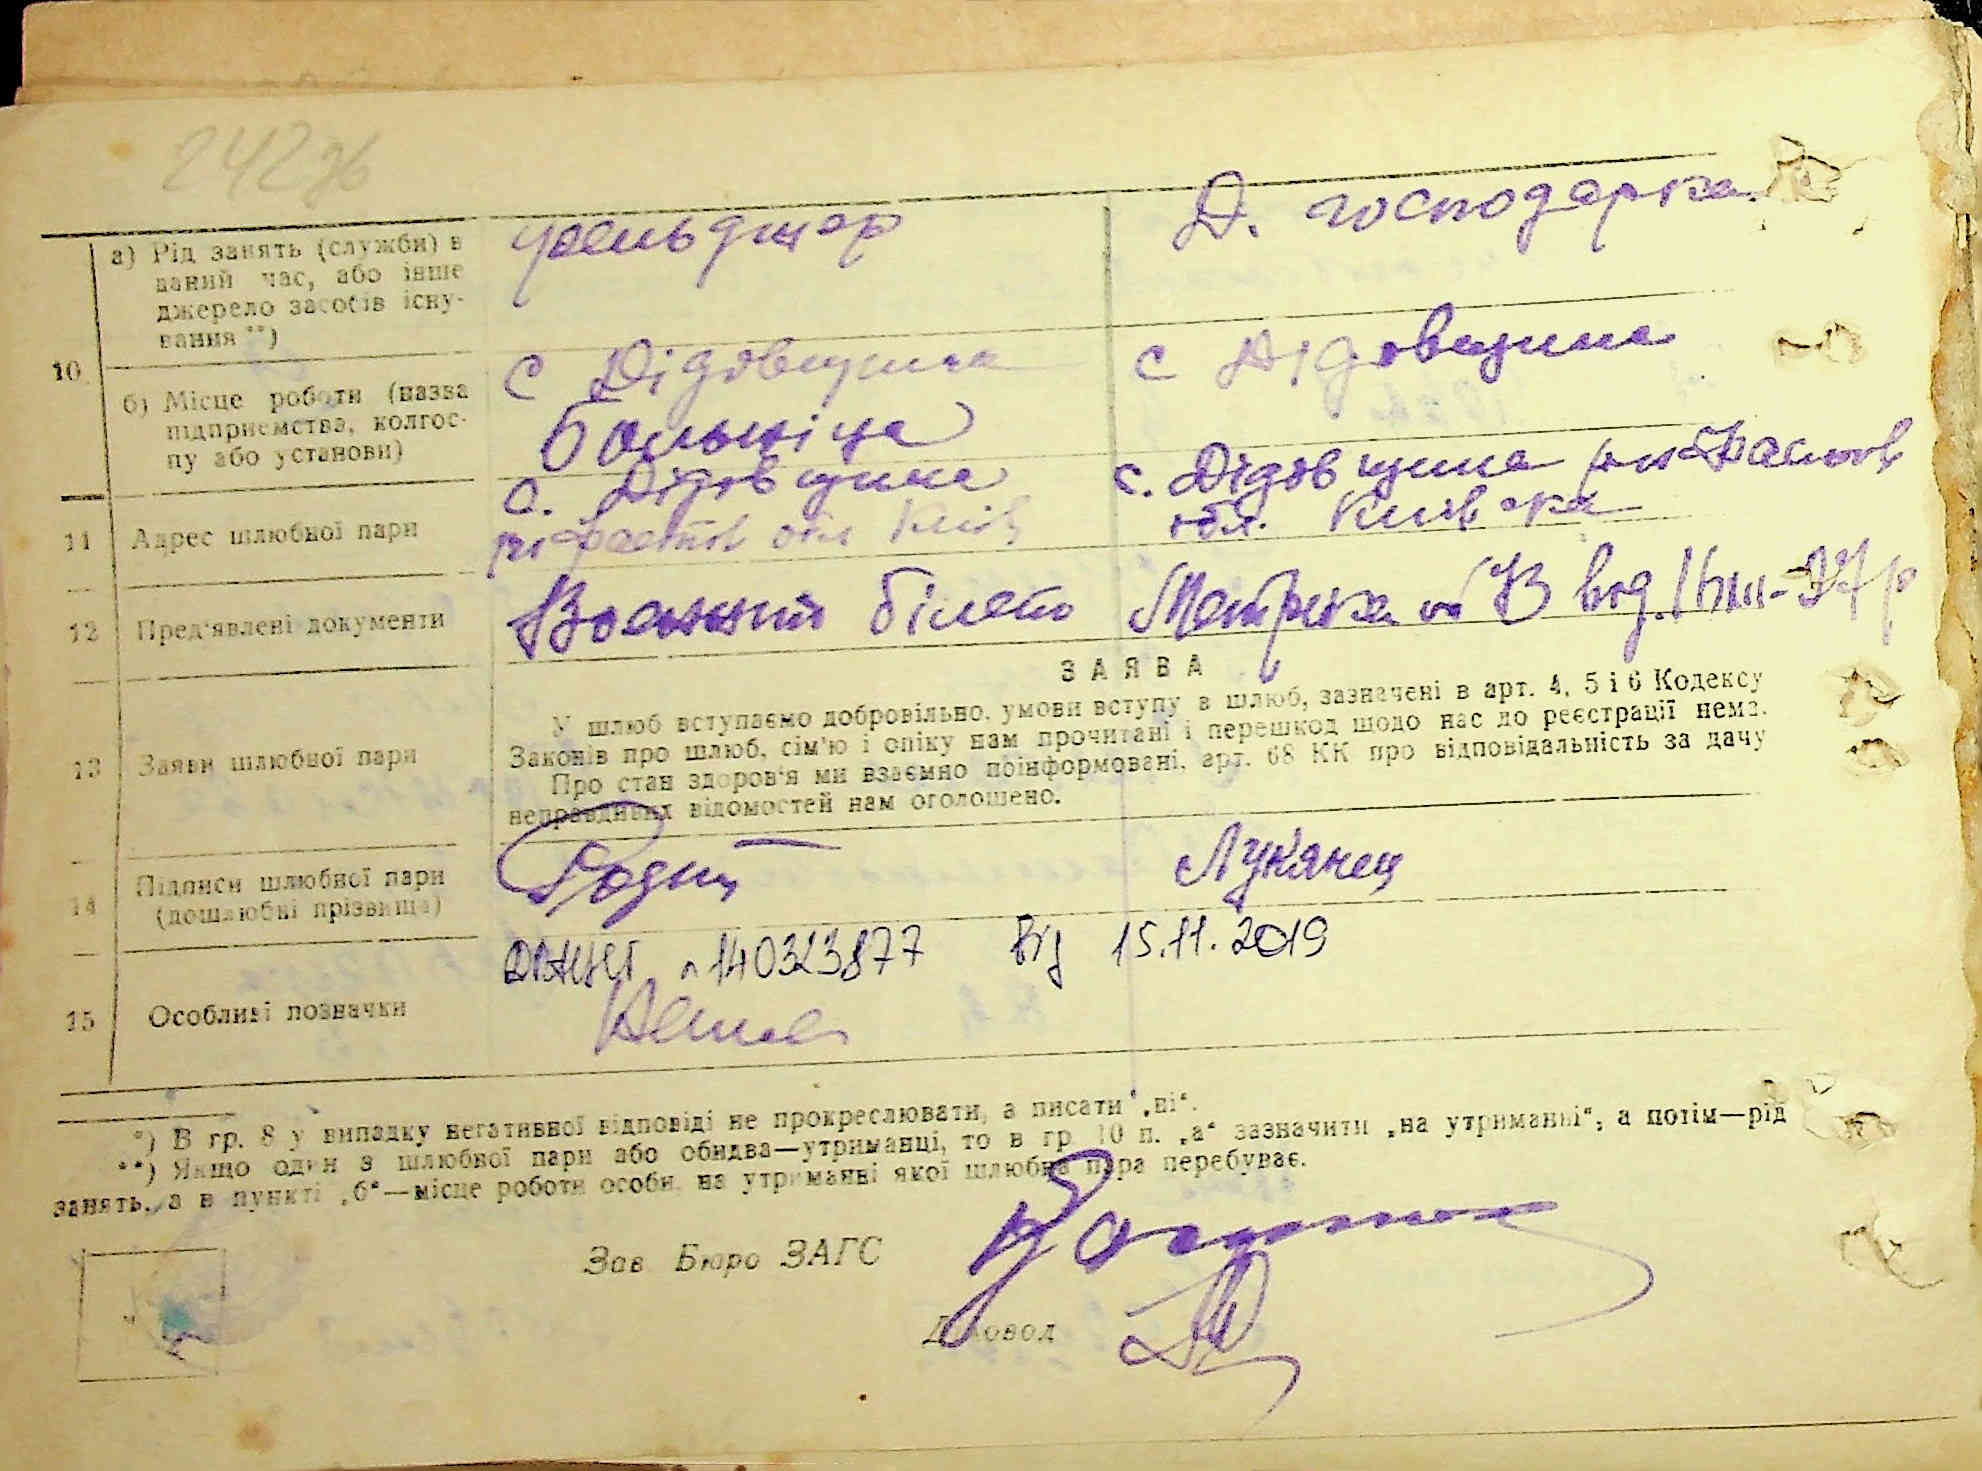 242зв
10
а) Рід занять (служби) в
даний час, або інше
джерело засобів існу-
вання **)
фельдшер
Д. господарка
б) Місце роботи (назва
підприємства, колгос-
пу або установи)
с Дідовщина
больніца
с Дідовщина
11 Адрес шлюбної пари
с. Дідовщина
рн Фастів обл Київ
с. Дідовщина рн Фастов
обл. Київська
12 Пред'явлені документи
Воєнний білет
Метрика
13 Заяви шлюбної пари
ЗАЯВА
У шлюб вступаємо добровільно, умови вступу в шлюб, зазначені в арт. 4, 5 і 6 Кодексу
Законів про шлюб, сім'ю і опіку нам прочитані і перешкод щодо нас до реєстрації нема.
Про стан здоров'я ми взаємно поінформовані, арт. 68 КК про відповідальність за дачу
неправдивих відомостей нам оголошено.
14 Підписи шлюбної пари
(дошлюбні прізвища)
Лукянец
15 Особливі позначки
№ 140323877 від 15.11.2019
Нема
*) В гр. 8 у випадку негативної відповіді не прокреслювати, а писати „ні“.
**) Якщо один з шлюбної пари або обидва—утриманці, то в гр 10 п. „а“ зазначити „на утриманні“, а потім—рід
занять, а в пункті „б“—місце роботи особи, на утриманні якої шлюбна пара перебуває.
Зав Бюро ЗАГС
Діловод